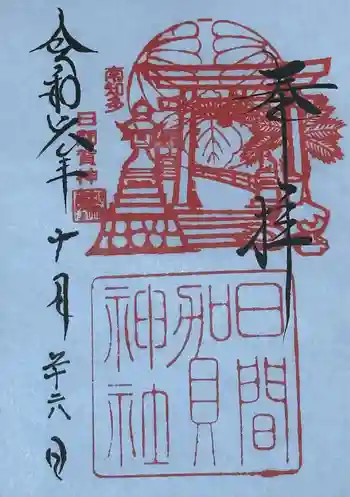 奉拝
日間賀神社
南知多
日間賀神
令和六年
十月
廿六日